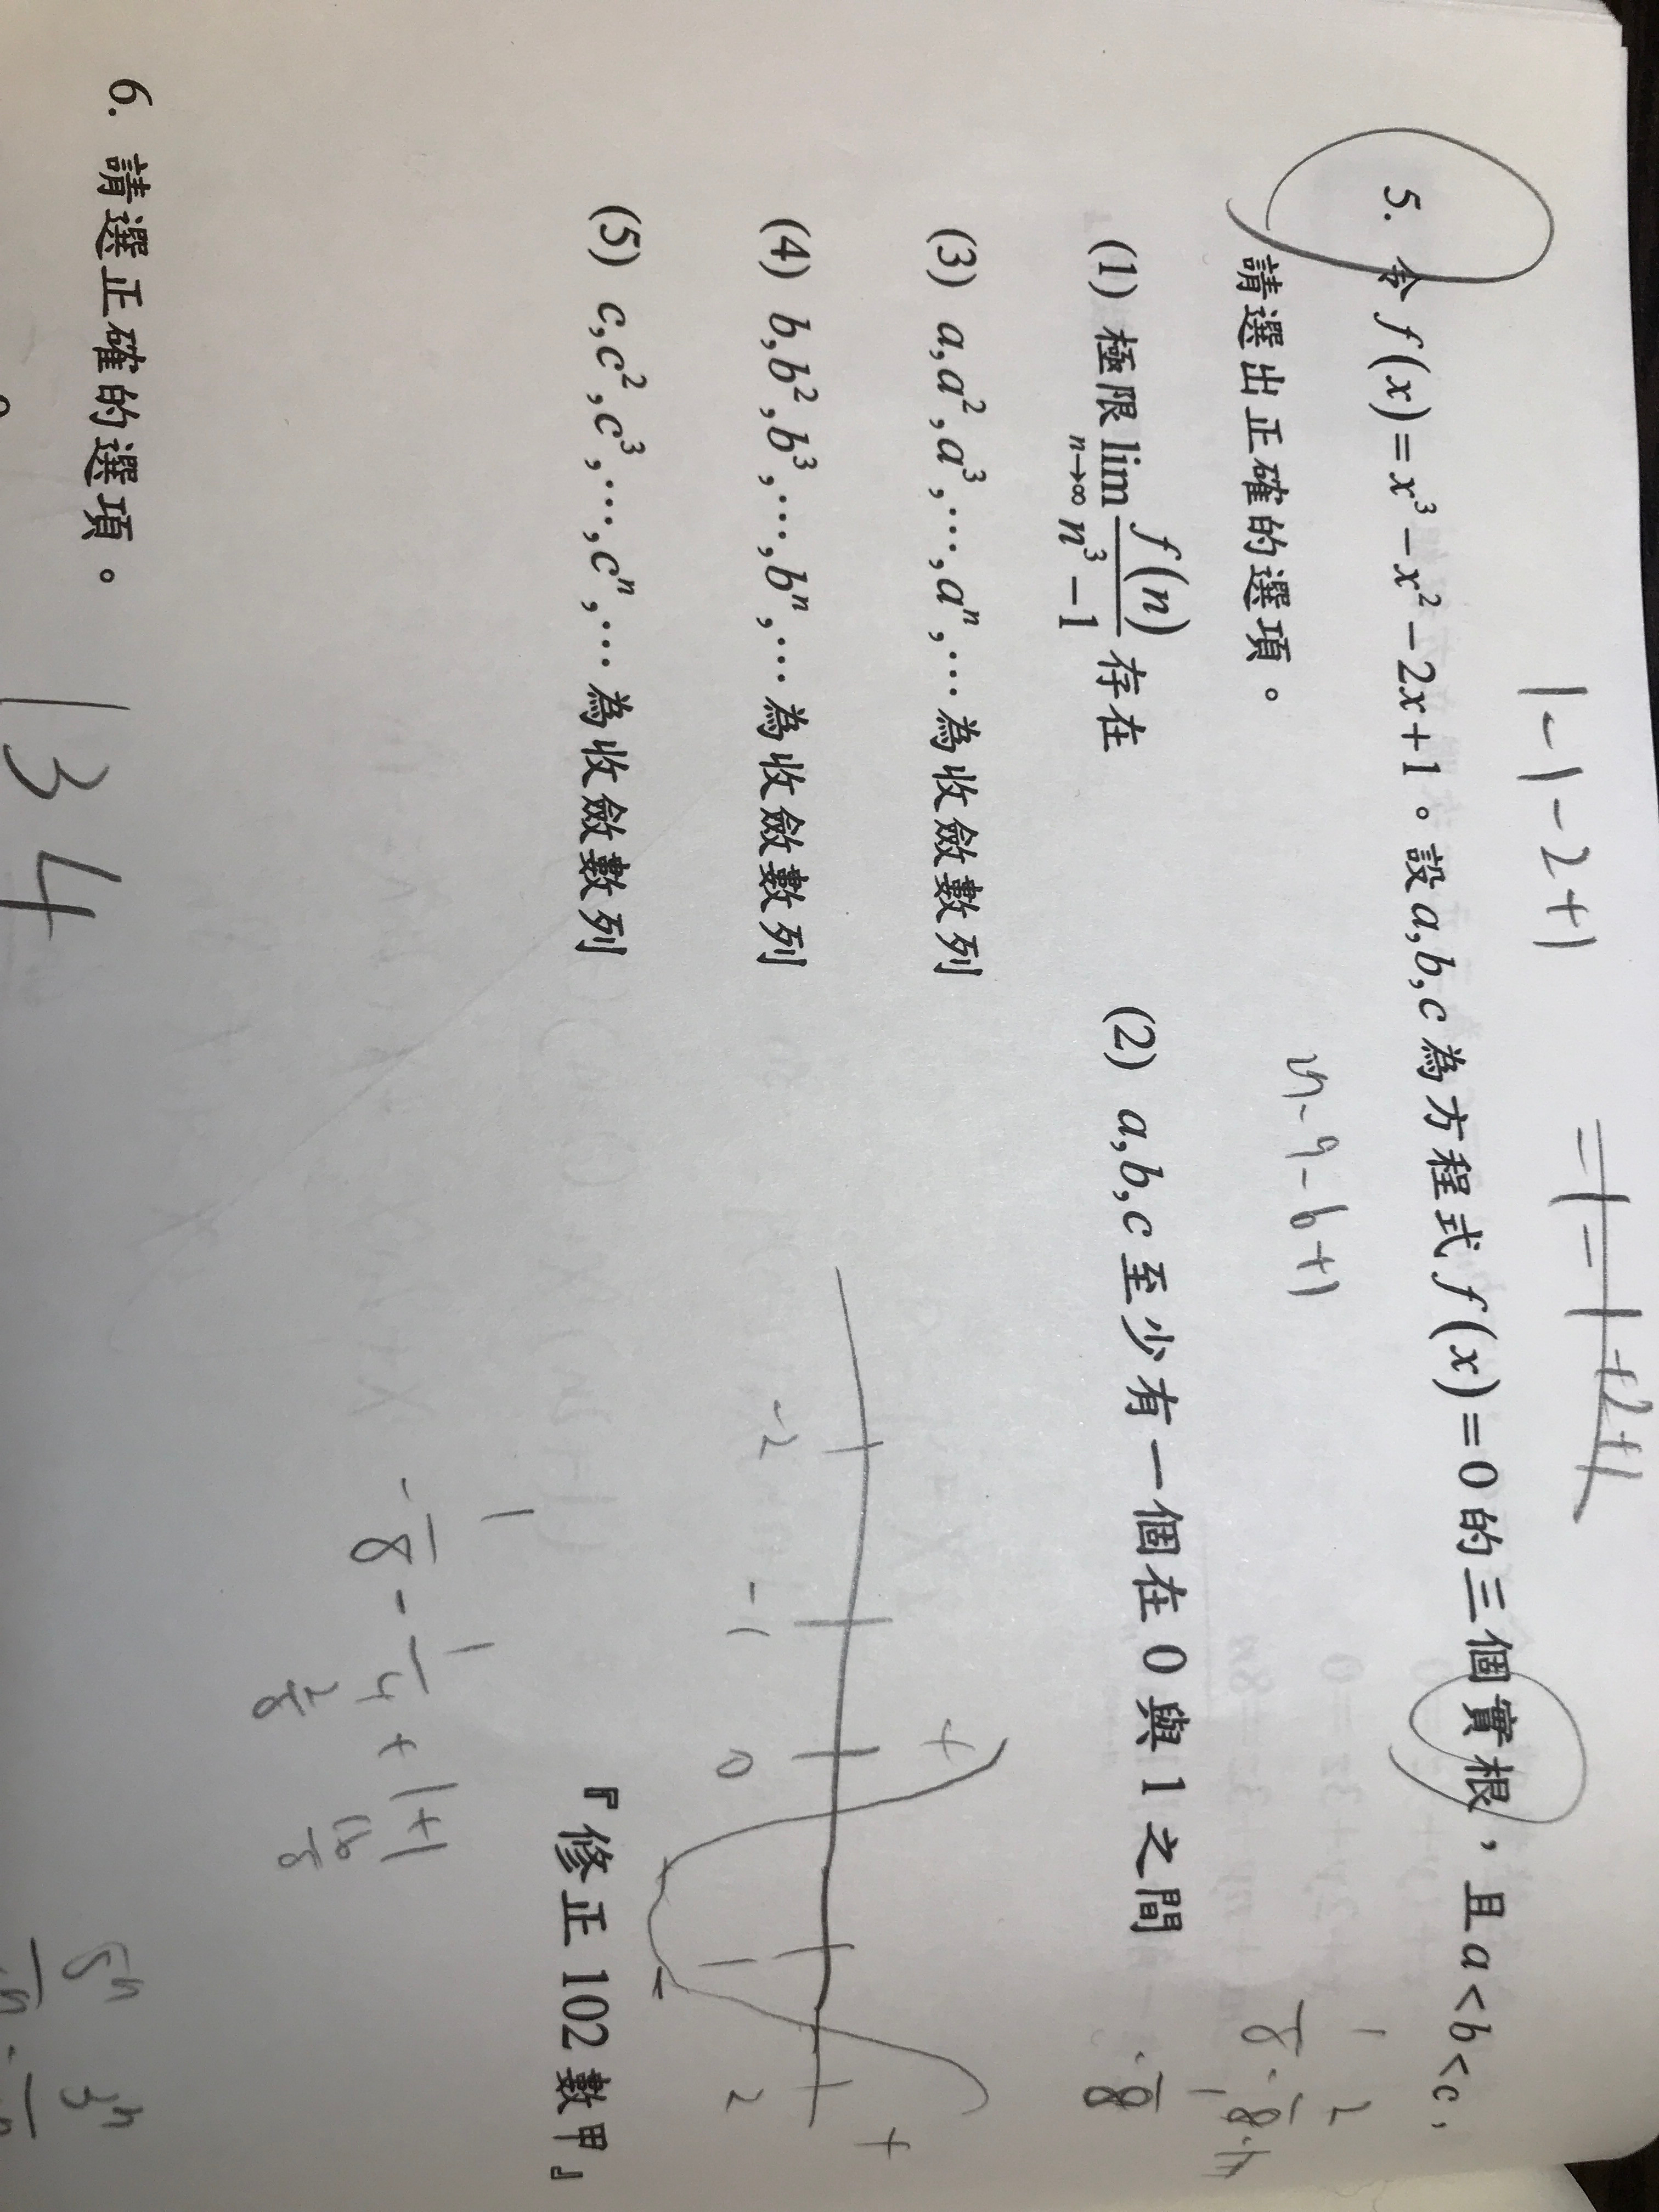 1-1-2+1
=1-1+2+1
5. 令 f(x)=x³-x²-2x+1。設a,b,c為方程式f(x)=0的三個實根，且a<b<c，
請選出正確的選項。
(1) 極限 lim n→∞ f(n)/(n³-1) 存在
(2) a,b,c至少有一個在0與1之間
(3) a,a²,a³,⋯,aⁿ,⋯為收斂數列
(4) b,b²,b³,⋯,bⁿ,⋯為收斂數列
+ +
-2 -1 0 1 2
(5) c,c²,c³,⋯,cⁿ,⋯為收斂數列
『修正102數甲』
-1/8-1/4+1+1
6. 請選正確的選項。
134